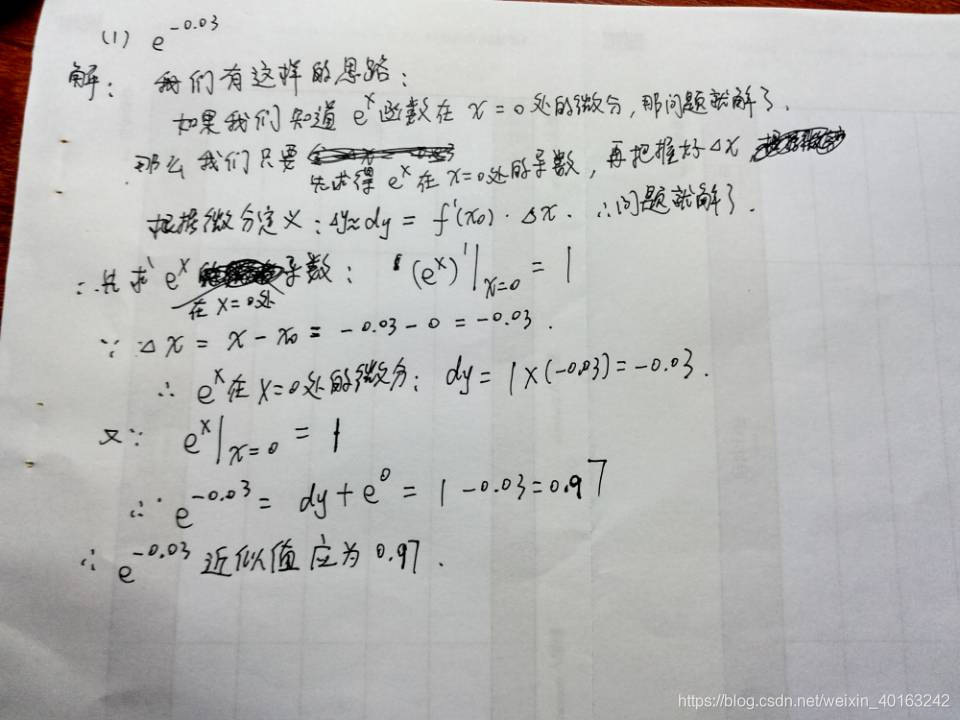 (1) e^-0.03
解: 我们有这样的思路:
如果我们知道 e^x 函数在 x=0 处的微分, 那问题就解了.
那么我们只要先求得 e^x 在 x=0处的导数, 再把握好 Δx
根据微分定义: Δy≈dy = f'(x₀)·Δx. ∴问题就解了.
∴先求 e^x 在x=0处 导数: (e^x)'|x=0 = 1
∵ Δx = x-x₀ = -0.03-0 = -0.03.
∴ e^x 在 x=0处的微分: dy = 1×(-0.03) = -0.03.
又∵ e^x|x=0 = 1
∴ e^-0.03 = dy + e^0 = 1-0.03 = 0.97
∴ e^-0.03 近似值应为 0.97.
https://blog.csdn.net/weixin_40163242